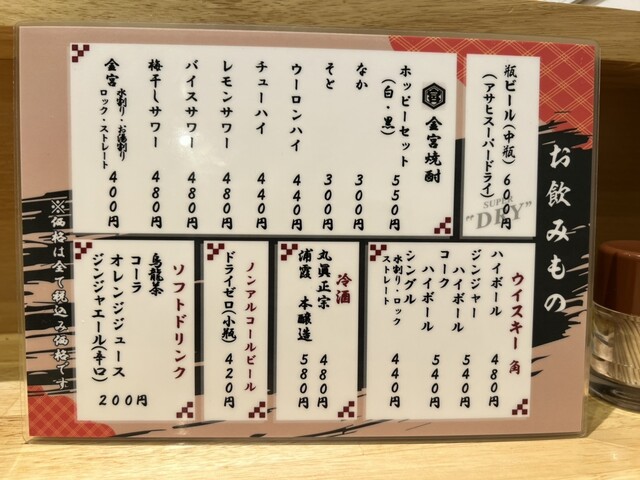 お飲みもの
瓶ビール(中瓶) 600円
(アサヒスーパードライ)
SUPER
"DRY"
金宮焼酎
ホッピーセット 550円
(白・黒)
なか 300円
そと 300円
ウーロンハイ 440円
チューハイ 440円
レモンサワー 480円
バイスサワー 480円
梅干しサワー 480円
金宮 400円
水割り・お湯割り
ロック・ストレート
ウイスキー 角
ハイボール 480円
ジンジャー
ハイボール 540円
コーク
ハイボール 540円
シングル 440円
水割り・ロック
ストレート
冷酒
丸眞正宗 480円
浦霞 本醸造 580円
ノンアルコールビール
ドライゼロ(小瓶) 420円
ソフトドリンク
烏龍茶
コーラ
オレンジジュース
ジンジャエール(辛口)
200円
※価格は全て税込み価格です